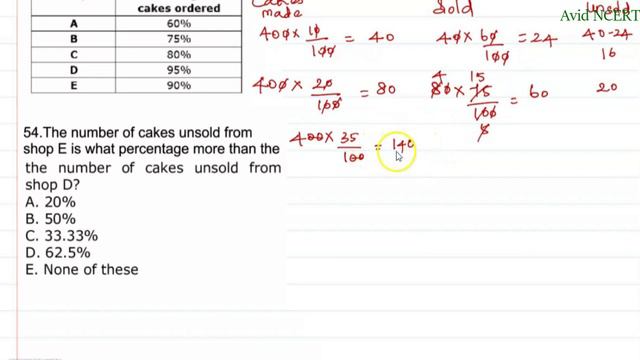 cakes ordered
Cakes made Sold unsold
Avid NCERT
A 60%
B 75%
C 80%
D 95%
E 90%
400 x 10/100 = 40 40 x 60/100 = 24 40-24
16
400 x 20/100 = 80 4 80 x 15 75/100 5 = 60 20
400 x 35/100 = 140
54.The number of cakes unsold from
shop E is what percentage more than the
the number of cakes unsold from
shop D?
A. 20%
B. 50%
C. 33.33%
D. 62.5%
E. None of these